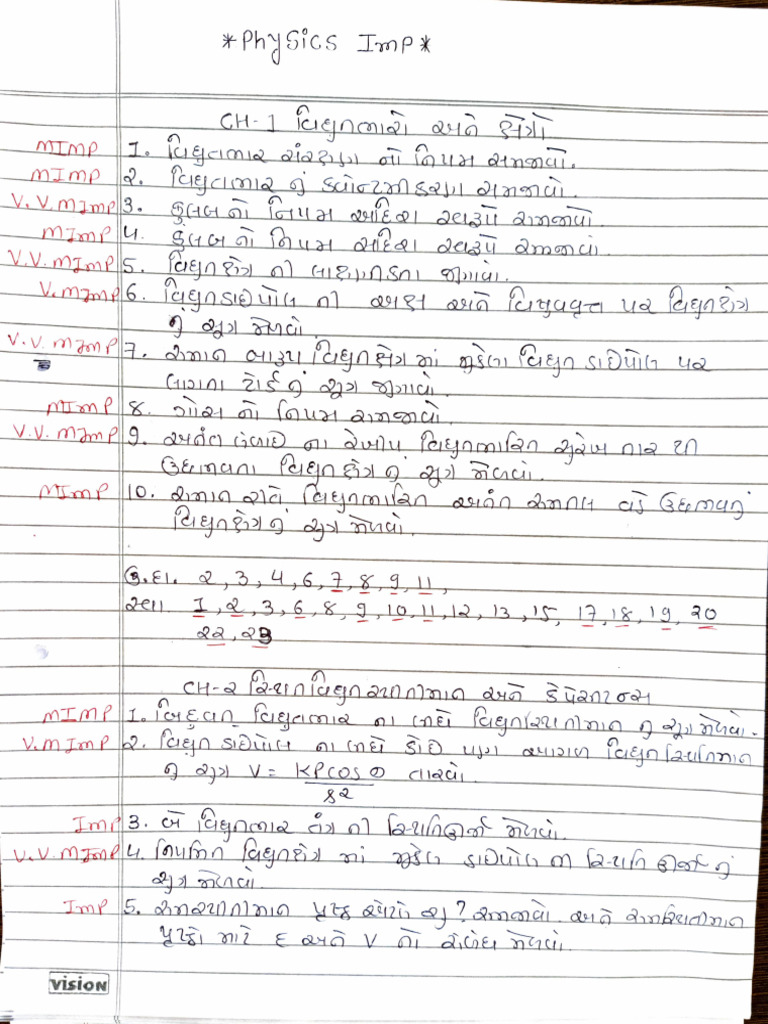 *Physics Imp*
CH-1 વિદ્યુતભારો અને ક્ષેત્રો
MIMP 1. વિદ્યુતભાર સંરક્ષણ નો નિયમ સમજાવો.
MIMP 2. વિદ્યુતભાર નું ક્વોન્ટમીકરણ સમજાવો.
V.V.MImp 3. કુલંબ નો નિયમ અદિશ સ્વરૂપે સમજાવો.
MImp 4. કુલંબ નો નિયમ સદિશ સ્વરૂપે સમજાવો.
V.V.MImp 5. વિદ્યુતક્ષેત્ર ની લાક્ષણિકતા જણાવો.
V.MImp 6. વિદ્યુત ડાઈપોલ ની અક્ષ અને વિષુવવૃત્ત પર વિદ્યુતક્ષેત્ર
નું સૂત્ર મેળવો.
V.V.MImp 7. સમાન બાહ્ય વિદ્યુતક્ષેત્ર માં મુકેલા વિદ્યુત ડાઈપોલ પર
લાગતા ટોર્ક નું સૂત્ર જણાવો.
MIMP 8. ગોસ નો નિયમ સમજાવો.
V.V.MImp 9. અનંત લંબાઈ ના રેખીય વિદ્યુતભારિત સુરેખ તાર થી
ઉદ્દભવતા વિદ્યુતક્ષેત્ર નું સૂત્ર મેળવો.
MImp 10. સમાન રીતે વિદ્યુતભારિત અનંત સમતલ વડે ઉદ્દભવતું
વિદ્યુતક્ષેત્રનું સૂત્ર મેળવો.
ઉ.દા. 2, 3, 4, 6, 7, 8, 9, 11,
સ્વા. 1, 2, 3, 6, 8, 9, 10, 11, 12, 13, 15, 17, 18, 19, 20
22, 23
CH-2 સ્થિતવિદ્યુતસ્થિતિમાન અને કેપેસિટન્સ
MIMP 1. બિંદુવત્ વિદ્યુતભાર ના લીધે વિદ્યુતસ્થિતિમાન નું સૂત્ર મેળવો.
V.MImp 2. વિદ્યુત ડાઈપોલ ના લીધે કોઈ પણ આગળ વિદ્યુતસ્થિતિમાન
નું સૂત્ર V = KPCOS θ તારવો.
Imp 3. બે વિદ્યુતભાર તંત્ર ની સ્થિતિઊર્જા મેળવો.
V.V.MImp 4. નિયમિત વિદ્યુતક્ષેત્ર માં મુકેલ ડાઈપોલ ની સ્થિતિ ઊર્જા નું
સૂત્ર મેળવો.
Imp 5. સમસ્થિતીમાન પૃષ્ઠ એટલે શું? સમજાવો. અને સમસ્થિતીમાન
પૃષ્ઠો માટે E અને V નો સંબંધ મેળવો.
Vision